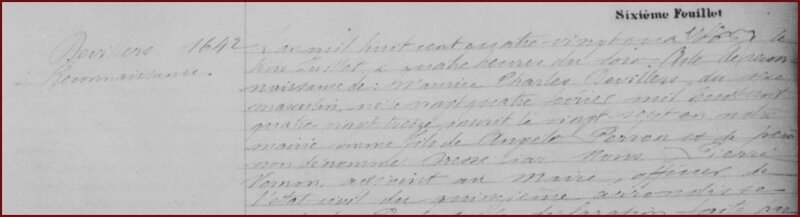 Sixième Feuillet
Devillers 1642
Reconnaissance.
L'an mil huit cent quatre-vingt quatorze le
Juillet, à quatre heures du soir. Acte de recon
naissance de: Maurice Charles Devillers, du sexe
masculin, né le vingt quatre février mil huit cent
quatre vingt treize, inscrit le vingt sept en notre
mairie comme fils de Angèle Perron et de père
non dénommé. Dressé par Nous Pierre
Vernon, adjoint au Maire, officier de
l'état civil du quinzième arrondisse
déclaration faite par